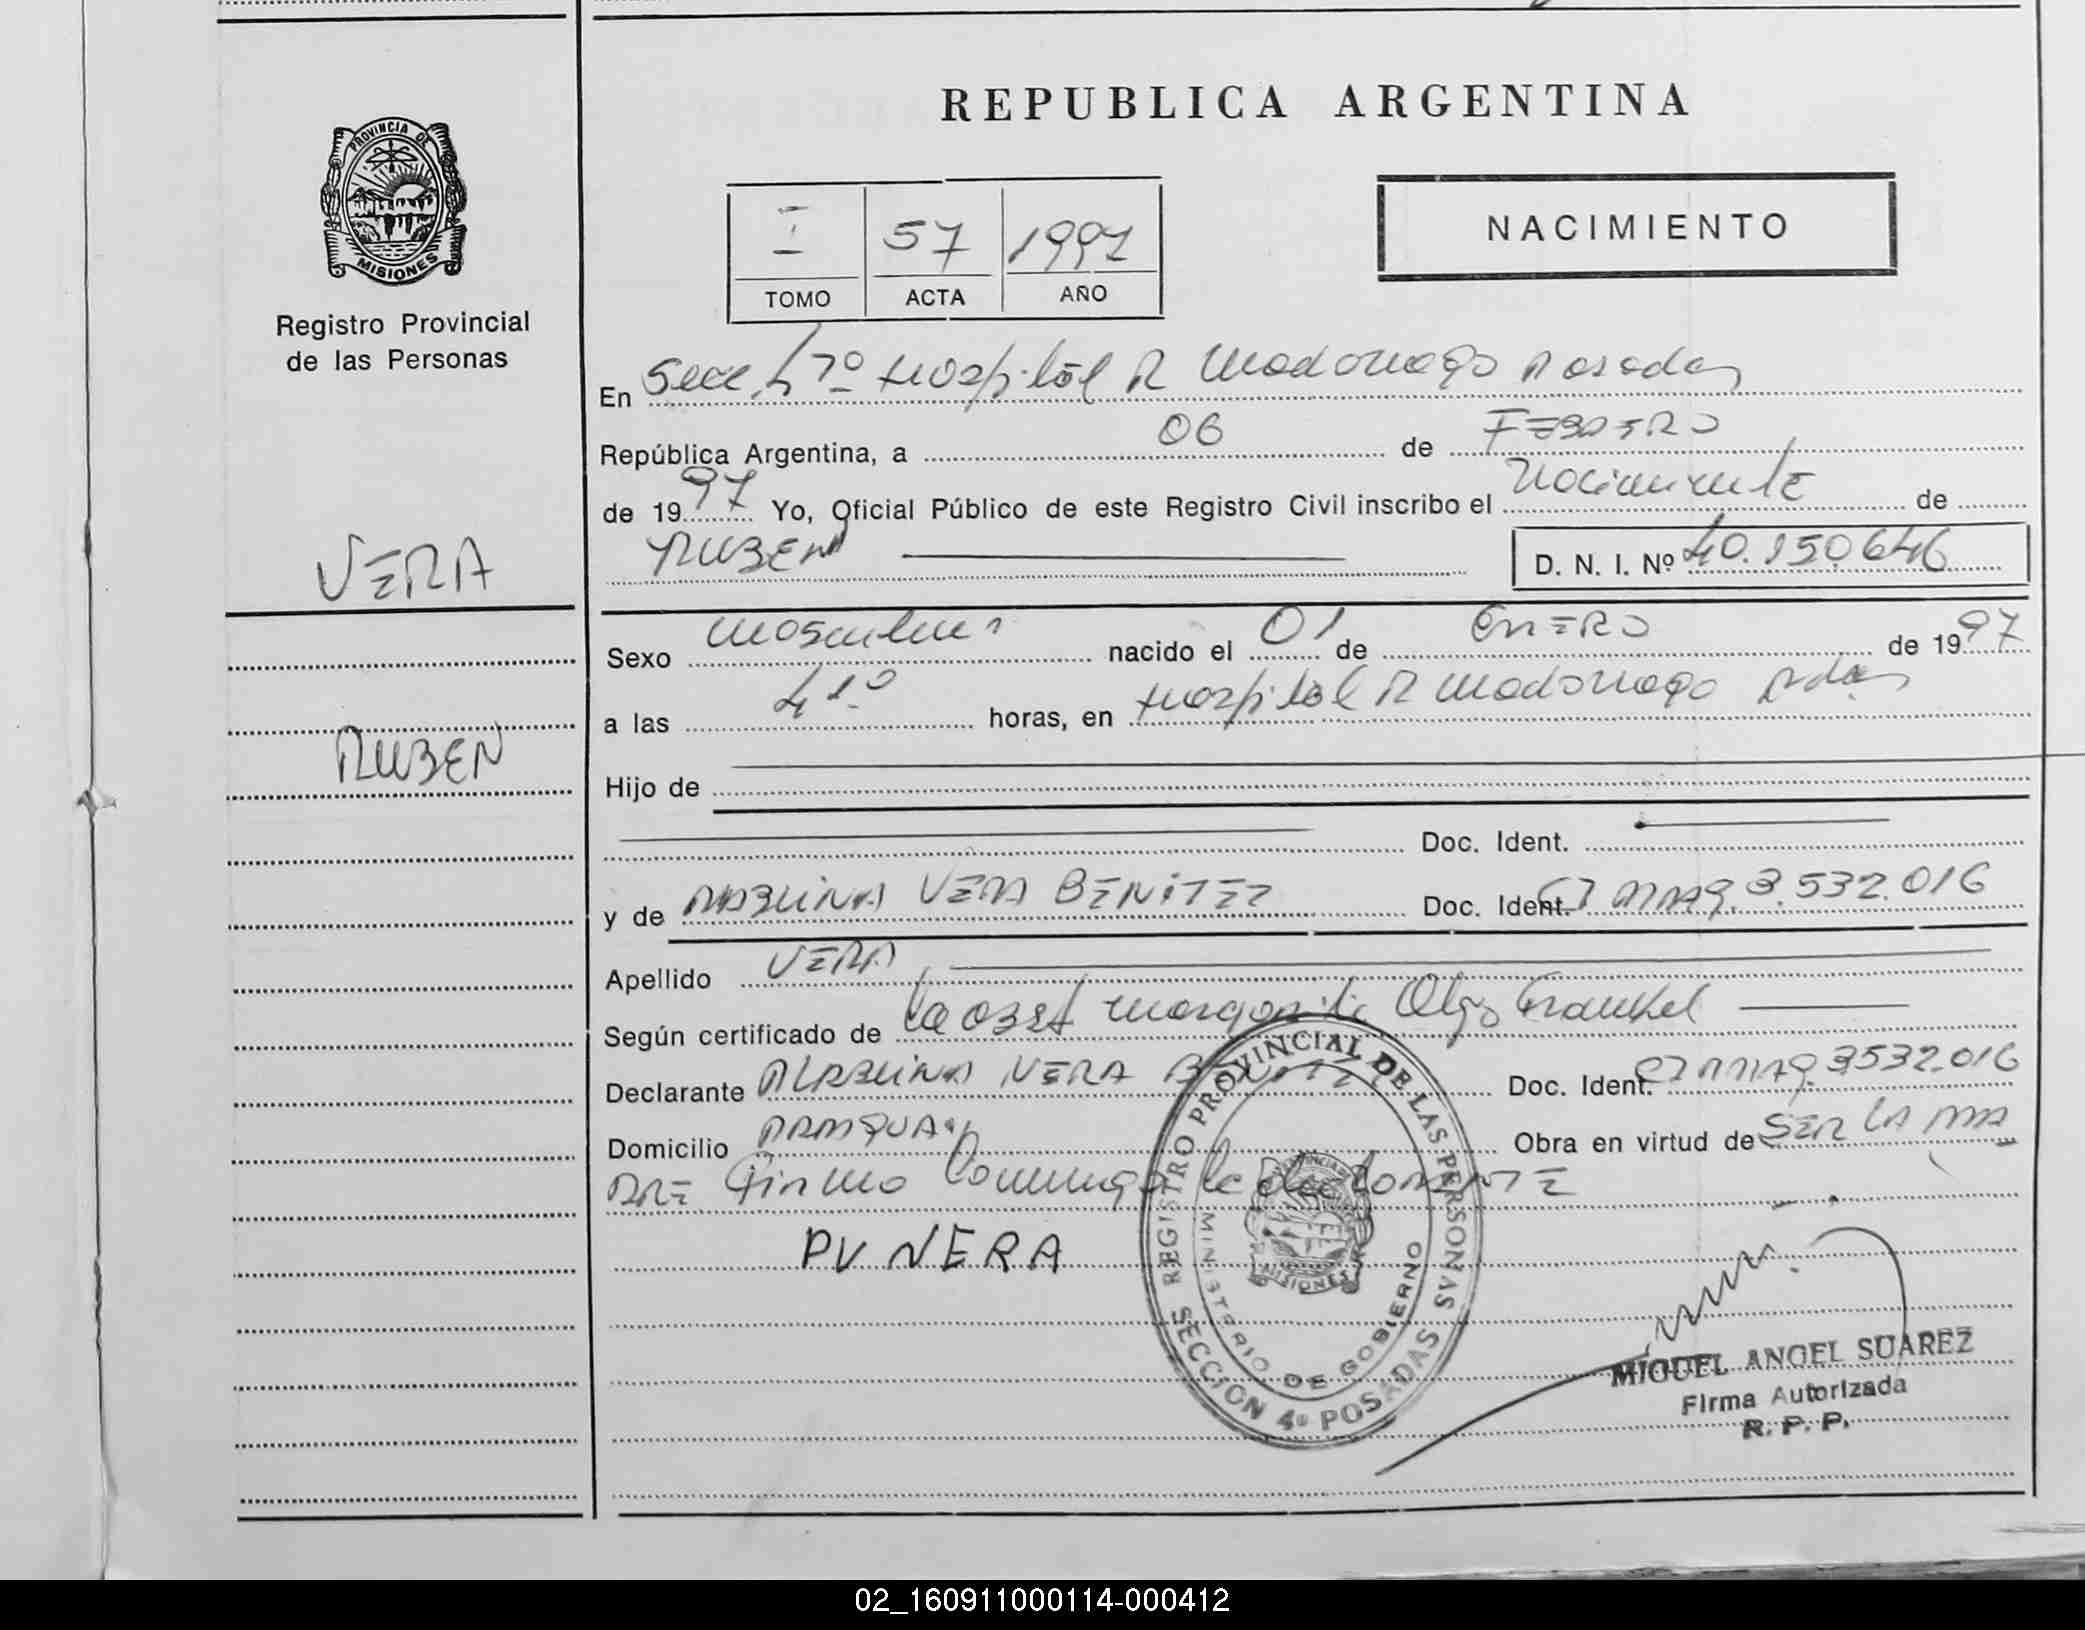 REPUBLICA ARGENTINA
PROVINCIA DE
MISIONES
Registro Provincial
de las Personas
I 57 1997
TOMO ACTA AÑO
NACIMIENTO
En Secc 7º Hospital R Madariaga Posadas
República Argentina, a 06 de FEBRERO
de 1997 Yo, Oficial Público de este Registro Civil inscribo el Nacimiento de
RUBEN D. N. I. Nº 40.150646
VERA
Sexo masculino nacido el 01 de ENERO de 1997
a las horas, en Hospital R Madariaga Pdas
RUBEN
Hijo de
Doc. Ident.
y de VERA BENITEZ Doc. Ident. 3.532.016
Apellido VERA
Según certificado de la OBST Margarita Olga Frankel
Declarante VERA BENITEZ Doc. Ident. 3532.016
Domicilio Obra en virtud de SER LA MA
DRE Firma Conmigo la declarante
PV VERA
REGISTRO PROVINCIAL DE LAS PERSONAS
MINISTERIO DE GOBIERNO
MISIONES
SECCION 4ª POSADAS
MIGUEL ANGEL SUAREZ
Firma Autorizada
R. P. P.
02_160911000114-000412